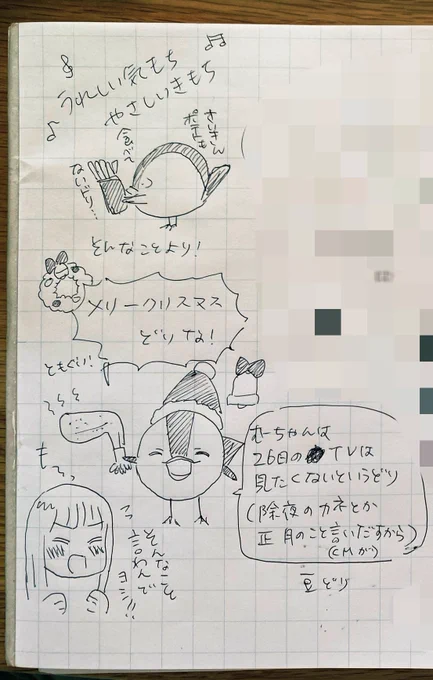 うれしい気もち
やさしいきもち
さいきん
ポテトも
食べて
ないどり…
そんなことより!
メリークリスマス
どりな!
ともぐい!
もーっ
そんなこと
言わんで
ヨシ!!
むーちゃんは
26日の TVは
見たくないというどり
(除夜のカネとか
正月のこと言いだすから)
(CMが)
豆どり